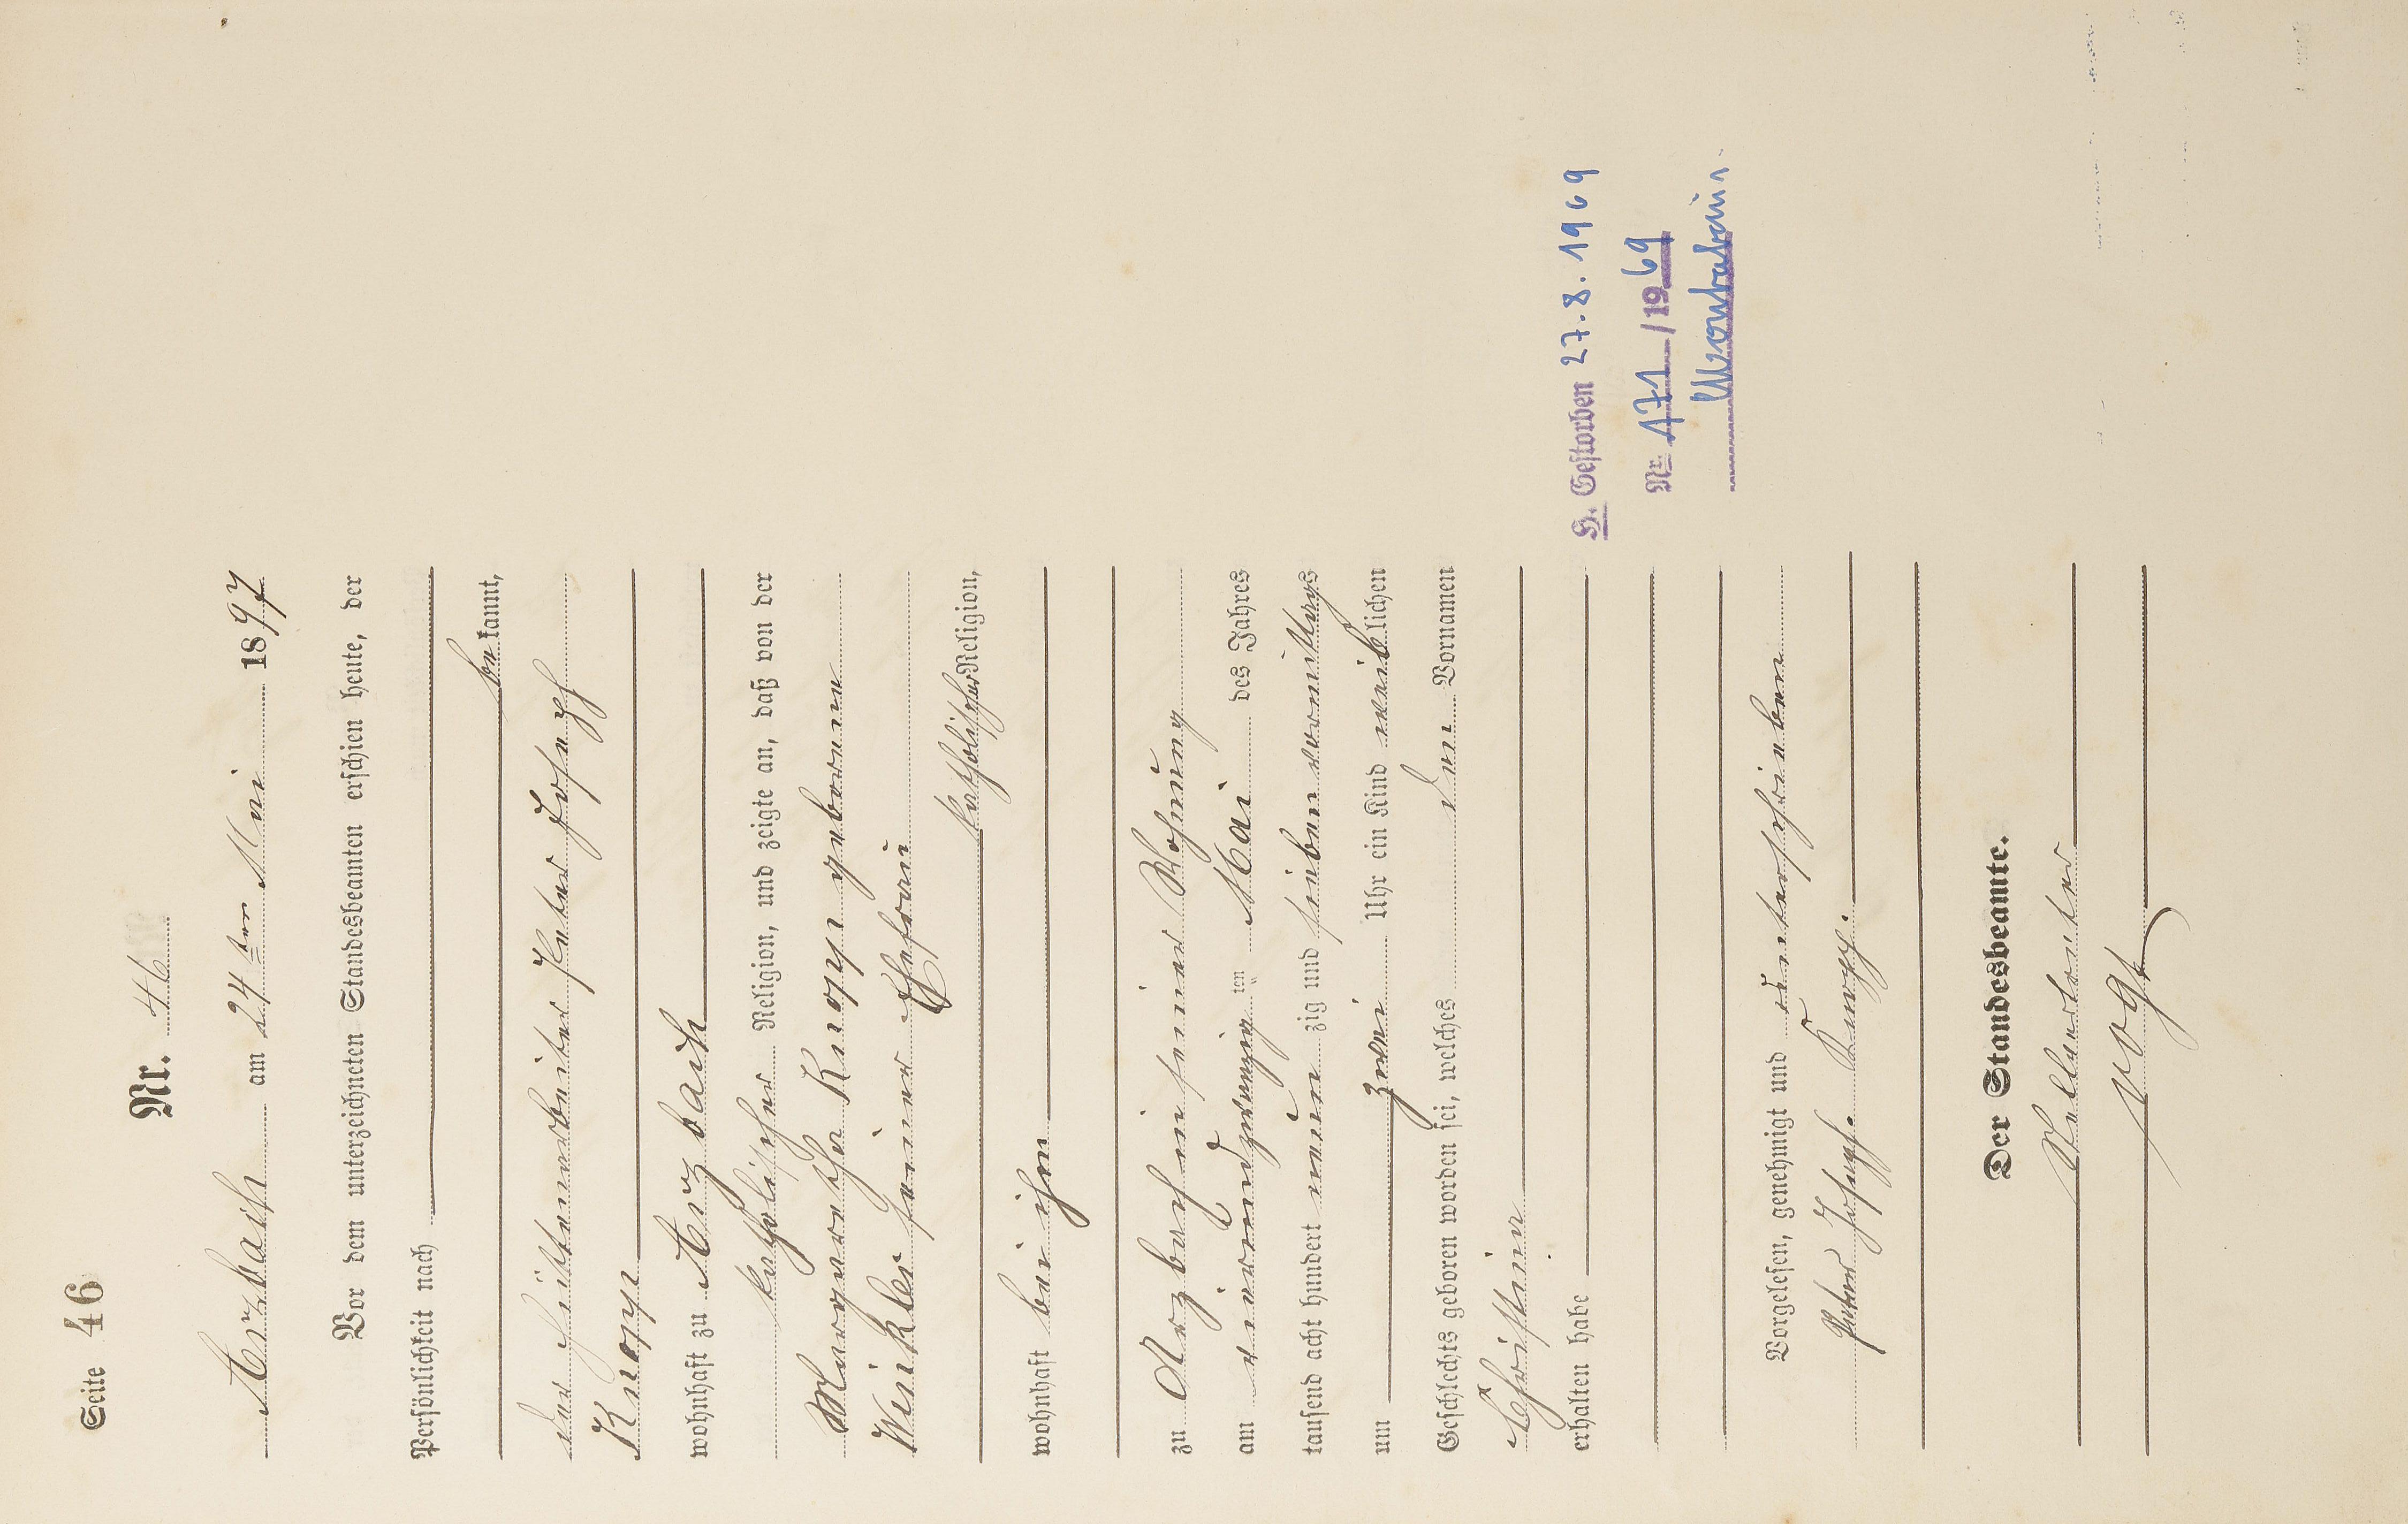 Seite 46
Nr. 46
Arzbach am 24ten Mai 1897
Vor dem unterzeichneten Standesbeamten erschien heute, der
Persönlichkeit nach
bekannt,
der Hüttenarbeiter Peter Joseph
Knopp
wohnhaft zu Arzbach
katholischer Religion, und zeigte an, daß von der
Margaretha Knopp geborene
Winkler seiner Ehefrau
katholischer Religion,
wohnhaft bei ihm
zu Arzbach in seiner Wohnung
am vierundzwanzigten Mai des Jahres
tausend acht hundert neunzig und sieben vormittags
um zwei Uhr ein Kind weiblichen
Geschlechts geboren worden sei, welches den Vornamen
Christina
erhalten habe
H. Gestorben 27.8.1969
Nr. 171/1969
Montabaur
Vorgelesen, genehmigt und unterschrieben
Peter Joseph Knopp.
Der Standesbeamte.
Stellvertreter
Vogt